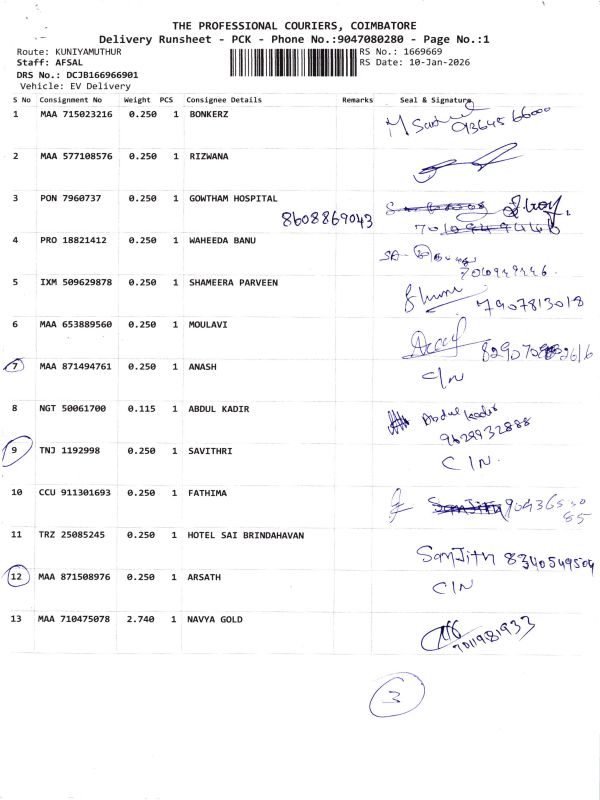 THE PROFESSIONAL COURIERS, COIMBATORE
Delivery Runsheet - PCK - Phone No.:9047080280 - Page No.:1
Route: KUNIYAMUTHUR RS No.: 1669669
Staff: AFSAL RS Date: 10-Jan-2026
DRS No.: DCJB166966901
Vehicle: EV Delivery
S No Consignment No Weight PCS Consignee Details Remarks Seal & Signature
1 MAA 715023216 0.250 1 BONKERZ
2 MAA 577108576 0.250 1 RIZWANA
3 PON 7960737 0.250 1 GOWTHAM HOSPITAL
8608869043
4 PRO 18821412 0.250 1 WAHEEDA BANU
5 IXM 509629878 0.250 1 SHAMEERA PARVEEN
7907813018
6 MAA 653889560 0.250 1 MOULAVI
7 MAA 871494761 0.250 1 ANASH C/N
8 NGT 50061700 0.115 1 ABDUL KADIR Abdul kadir
9629932888
9 TNJ 1192998 0.250 1 SAVITHRI C/N.
10 CCU 911301693 0.250 1 FATHIMA
11 TRZ 25085245 0.250 1 HOTEL SAI BRINDAHAVAN
SanJith 8340549504
12 MAA 871508976 0.250 1 ARSATH C/N
13 MAA 710475078 2.740 1 NAVYA GOLD
7011981933
3